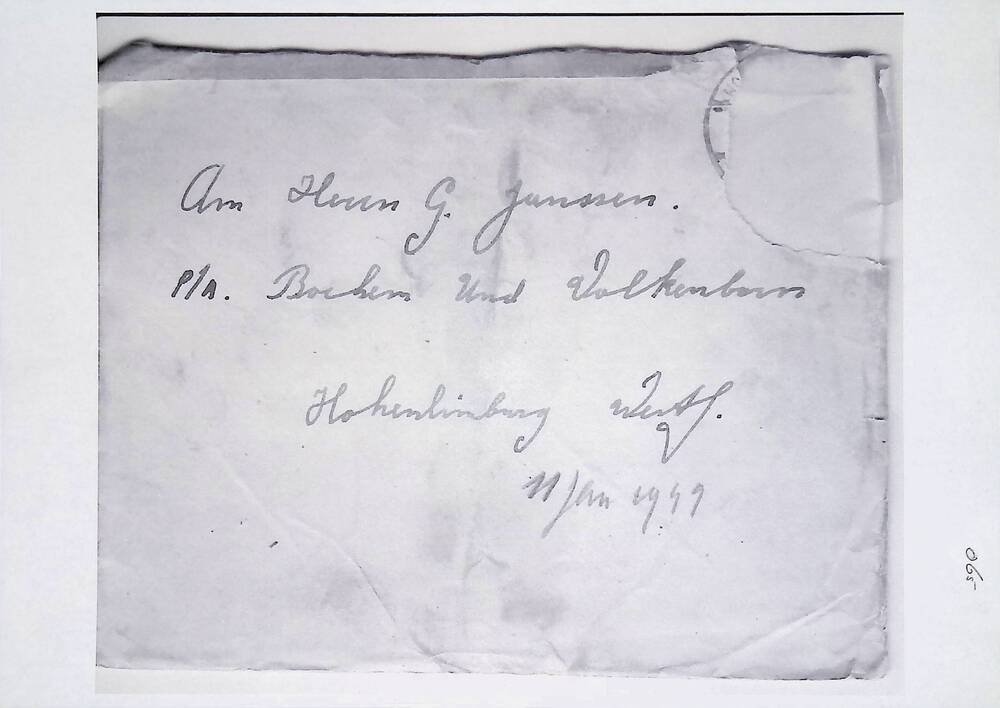 Am Herrn G. Janssen.
p/a. Bochem und Volkenborn
Hohenlimburg Westf.
11 Jan 1944
065